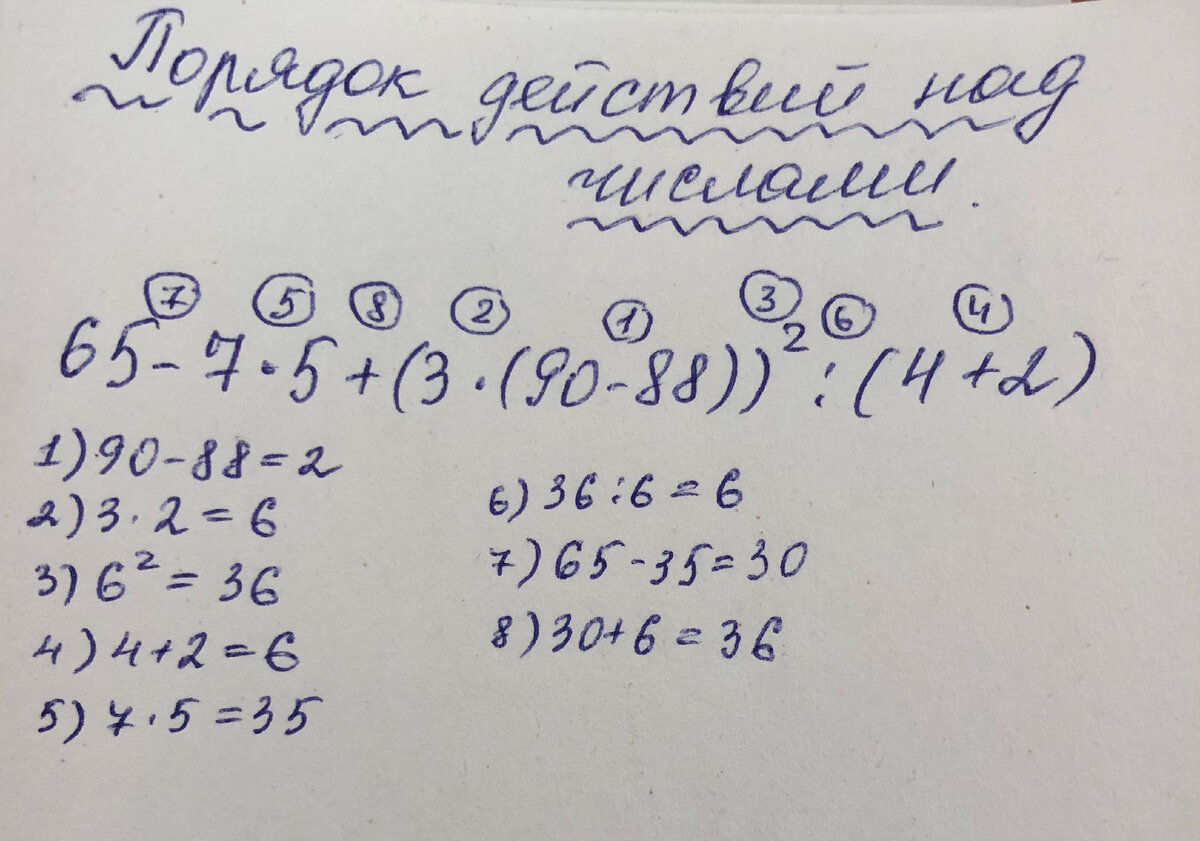 Порядок действий над
числами.
7 5 8 2 1 3 6 4
65-7·5+(3·(90-88))²:(4+2)
1) 90-88=2
2) 3·2=6
3) 6²=36
4) 4+2=6
5) 7·5=35
6) 36:6=6
7) 65-35=30
8) 30+6=36